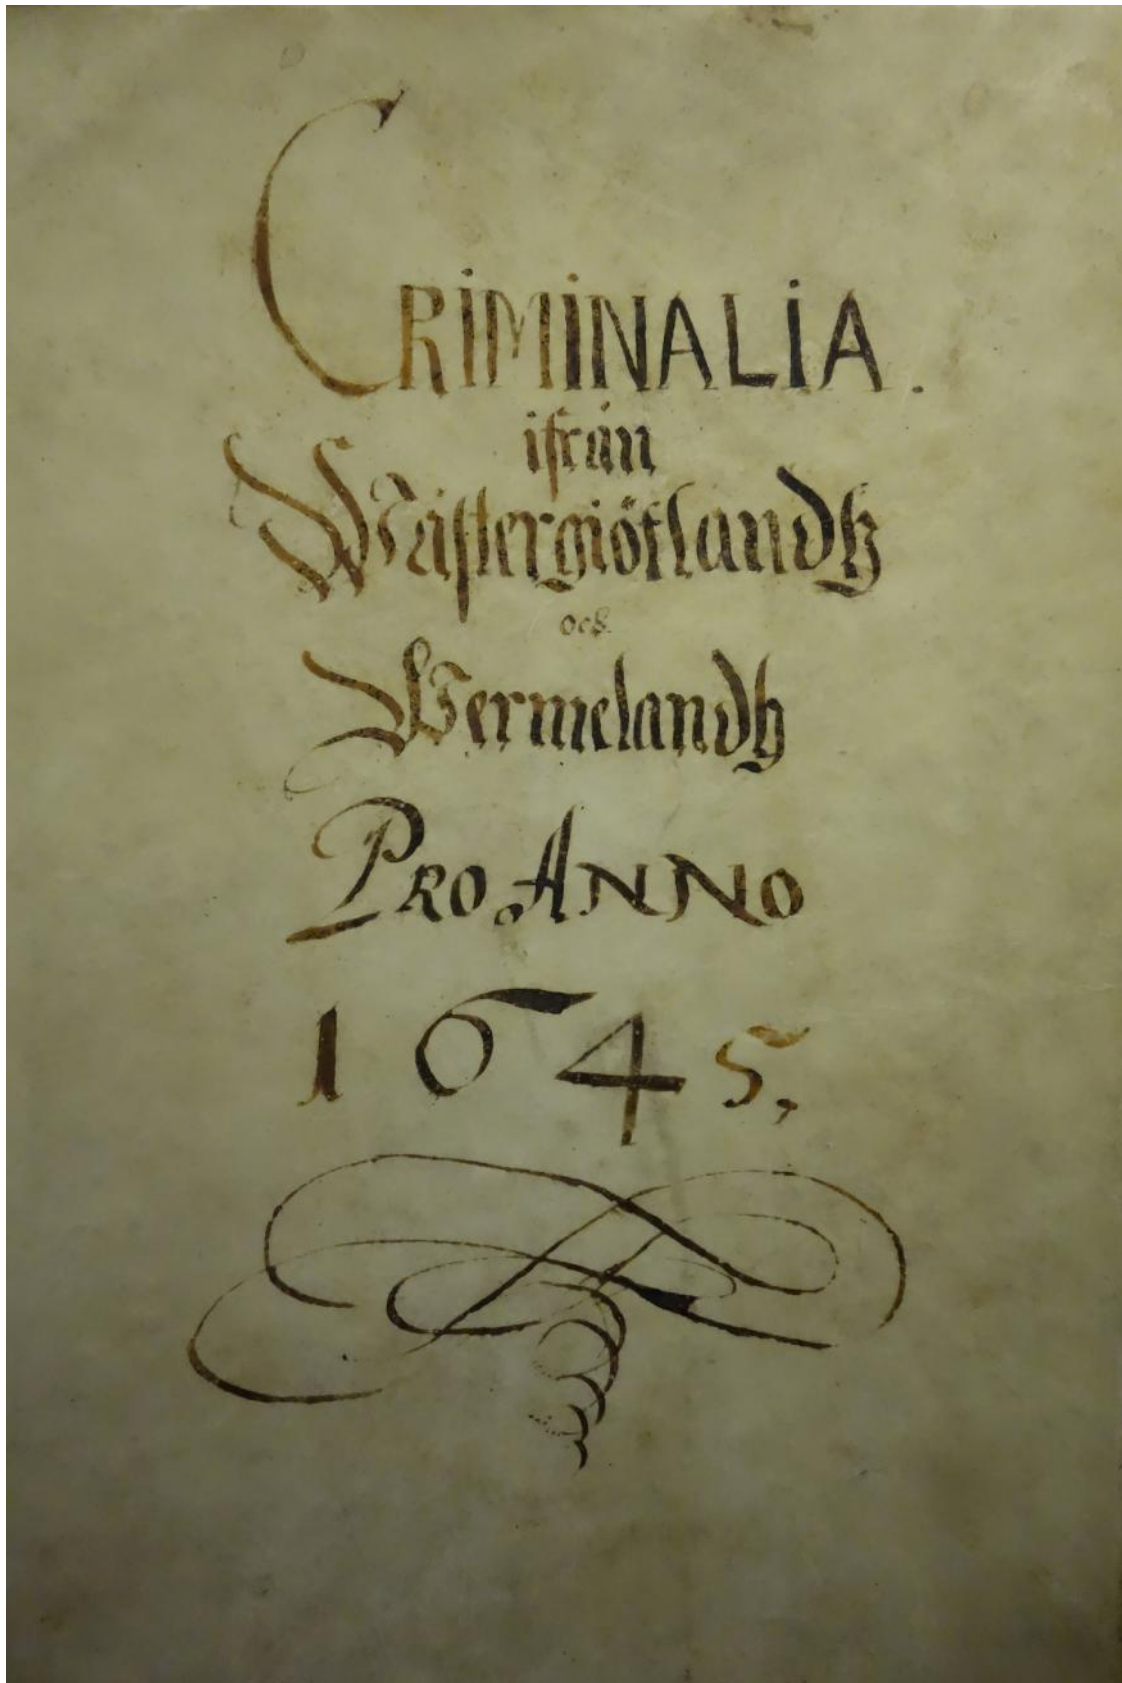 CRIMINALIA.
ifrån
Wästergiötlandh
och
Wermelandh
PRO ANNO
1645,